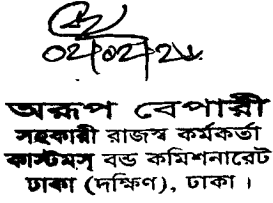 ০২/০২/২৫
অরূপ বেপারী
সহকারী রাজস্ব কর্মকর্তা
কাস্টমস্ বন্ড কমিশনারেট
ঢাকা (দক্ষিণ), ঢাকা ।